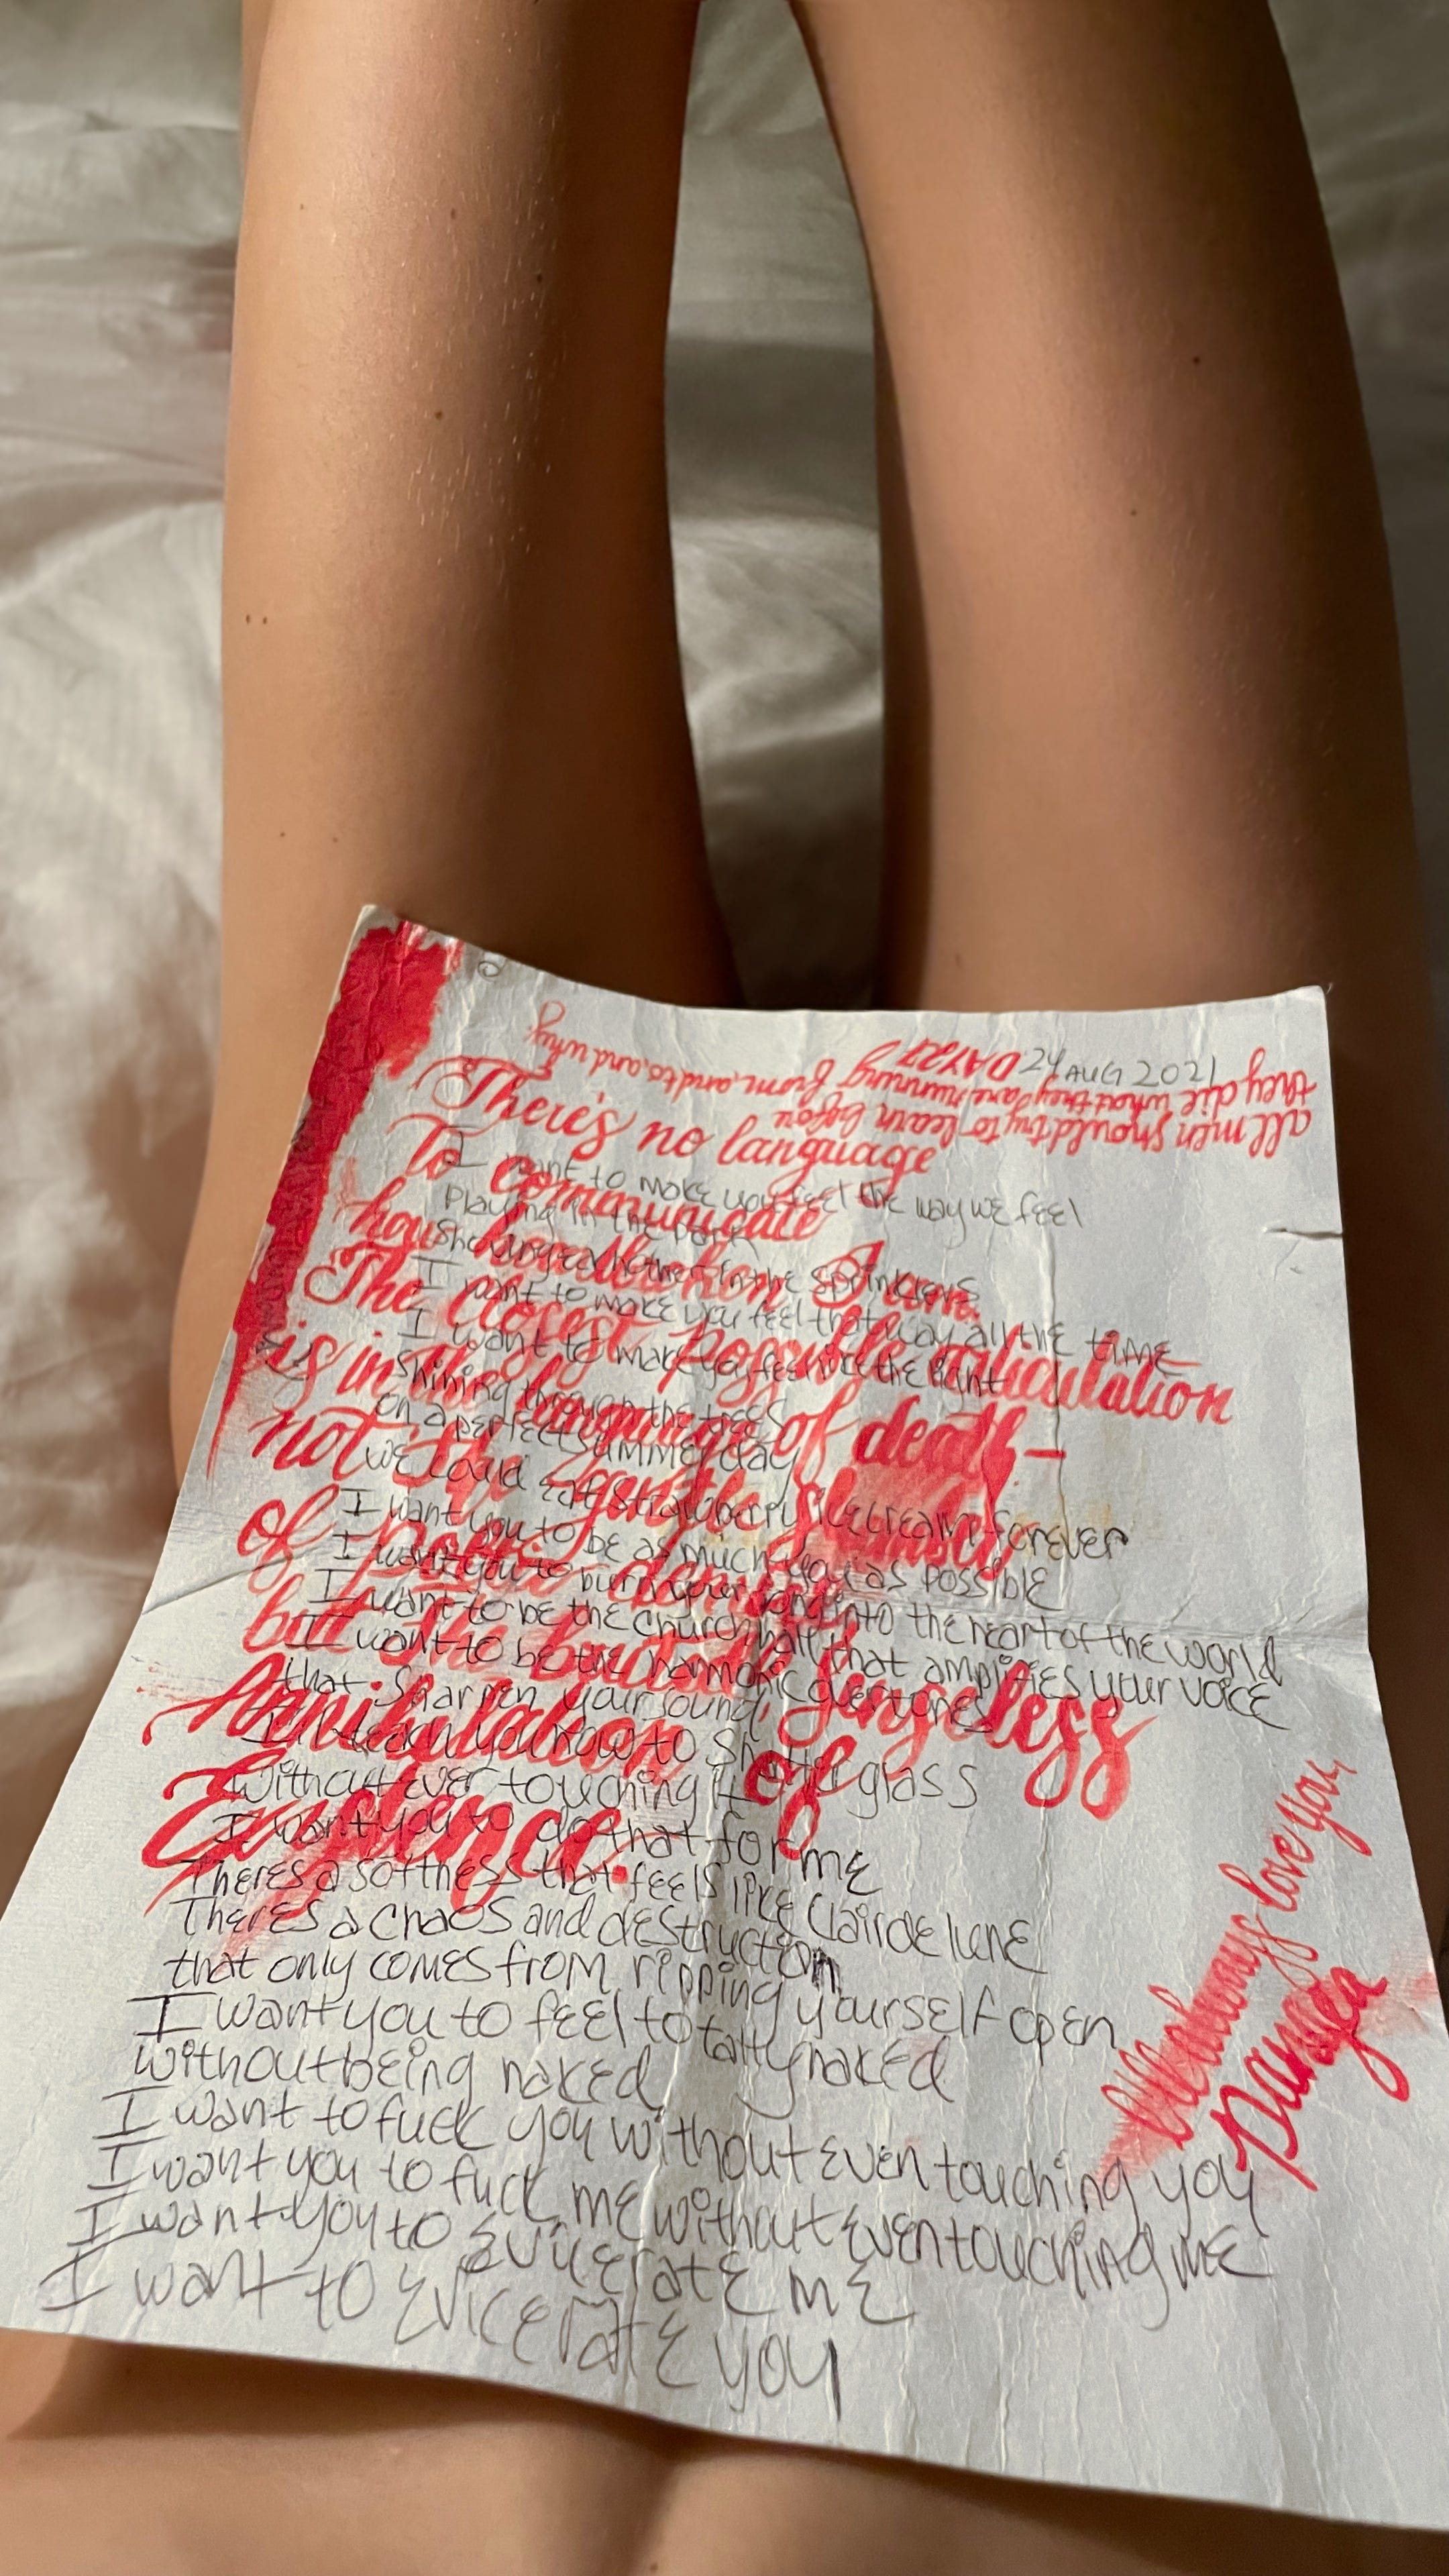 24 AUG 2021
DAY 27
all men should try to learn before
they die what they are running from, and to, and why.
There's no language
To communicate
how
The closest possible articulation
is in the language of death —
not the
of
but the senseless
Annihilation of
Existence.
I want to make you feel the way we feel
Playing in the park
in the sprinklers
I want to make you feel that way all the time
I want to make you feel like the light
Shining through the trees
on a perfect summer day
we could eat strawberry icecream forever
I want you to be as much you as possible
I want you to burn your song into the heart of the world
I want to be the church hall that amplifies your voice
I want to be the harmonic overtones
that sharpen your sound
teach you how to shatter glass
without ever touching it
I want you to do that for me
There's a softness that feels like Clair de lune
There's a chaos and destruction
that only comes from ripping yourself open
I want you to feel totally naked
without being naked
I want to fuck you without even touching you
I want you to fuck me without even touching me
I want you to evicerate me
I want to evicerate you
always love you